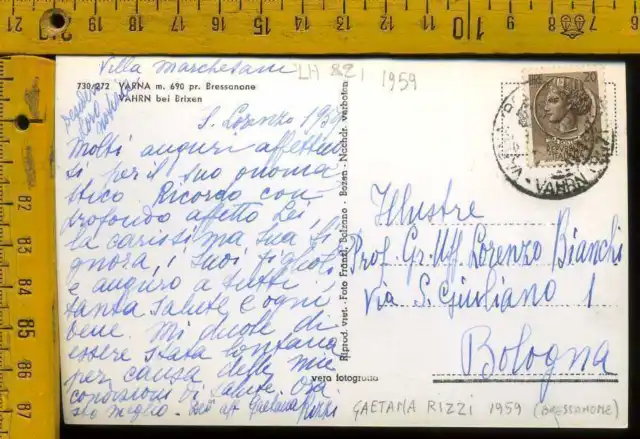 Villa Marchesani
LH 821 1959
730/272 VARNA m. 690 pr. Bressanone
VAHRN bei Brixen
S. Lorenzo 1959
Molti auguri affettuo
si per il suo onoma
stico. Ricordo con
profondo affetto Lei,
la carissima sua Si
gnora, i suoi figlioli
e auguro a tutti
tanta salute e ogni
bene. Mi duole di
essere stata lontana
per causa delle mie
condizioni di salute. Ora
sto meglio. aff Gaetana Rizzi
Riprod. viet. - Foto Fränzl, Bolzano - Bozen - Nachdr. verboten
vera fotografia
20
VAHRN
Illustre
Prof. Gr. Uff. Lorenzo Bianchi
Via S. Giuliano 1
Bologna
GAETANA RIZZI 1959 (BRESSANONE)
10
9
8
7
6
82
83
84
85
86
87